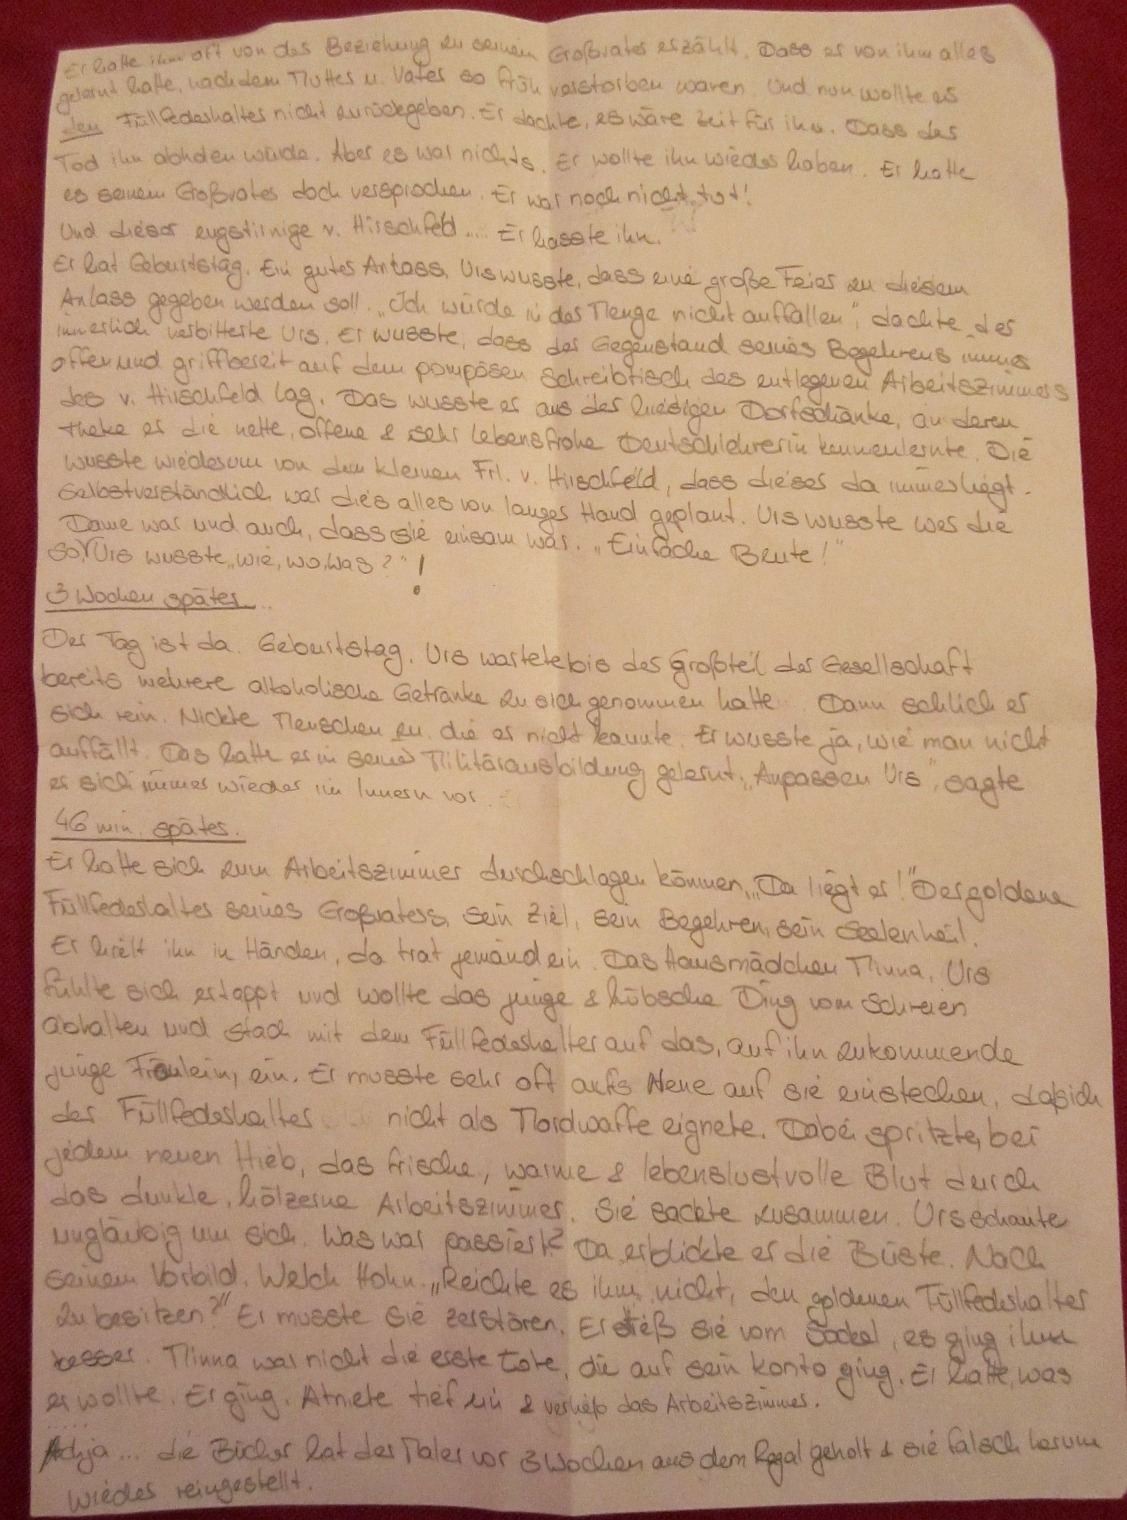 Er hatte ihm oft von der Beziehung zu seinem Großvater erzählt. Dass er von ihm alles
gelernt hatte, nachdem Mutter u. Vater so früh verstorben waren. Und nun wollte er
den Füllfederhalter nicht zurückgeben. Er dachte, es wäre Zeit für ihn. Dass der
Tod ihn abholen würde. Aber es war nichts. Er wollte ihn wieder haben. Er hatte
es seinem Großvater doch versprochen. Er war noch nicht tot!
Und dieser engstirnige v. Hirschfeld.... Er hasste ihn.
Er hat Geburtstag. Ein guter Anlass. Urs wusste, dass eine große Feier zu diesem
Anlass gegeben werden soll. „Ich würde in der Menge nicht auffallen", dachte der
innerlich verbitterte Urs. Er wusste, dass der Gegenstand seines Begehrens immer
offen und griffbereit auf dem pompösen Schreibtisch des entlegenen Arbeitszimmers
des v. Hirschfeld lag. Das wusste er aus der hiesigen Dorfschänke, an deren
Theke er die nette, offene & sehr lebensfrohe Deutschlehrerin kennenlernte. Die
wusste wiederum von dem kleinen Frl. v. Hirschfeld, dass dieser da immer liegt.
Selbstverständlich war dies alles von langer Hand geplant. Urs wusste wer die
Dame war und auch, dass sie einsam war. „Einfache Beute!"
So, Urs wusste „wie, wo, was?"!
3 Wochen später...
Der Tag ist da. Geburtstag. Urs wartete bis der Großteil der Gesellschaft
bereits mehrere alkoholische Getränke zu sich genommen hatte. Dann schlich er
sich rein. Nickte Menschen zu, die er nicht kannte. Er wusste ja, wie man nicht
auffällt. Das hatte er in seiner Militärausbildung gelernt. „Anpassen Urs", sagte
er sich immer wieder im Innern vor.
46 min. später.
Er hatte sich zum Arbeitszimmer durchschlagen können. „Da liegt er!" Der goldene
Füllfederhalter seines Großvaters, sein Ziel, sein Begehren, sein Seelenheil.
Er hielt ihn in Händen, da trat jemand ein. Das Hausmädchen Minna. Urs
fühlte sich ertappt und wollte das junge & hübsche Ding vom Schreien
abhalten und stach mit dem Füllfederhalter auf das, auf ihn zukommende
junge Fräulein, ein. Er musste sehr oft aufs Neue auf sie einstechen, da sich
der Füllfederhalter nicht als Mordwaffe eignete. Dabei spritzte, bei
jedem neuen Hieb, das frische, warme & lebenslustvolle Blut durch
das dunkle, hölzerne Arbeitszimmer. Sie sackte zusammen. Urs schaute
ungläubig um sich. Was war passiert? Da erblickte er die Büste. Nach
seinem Vorbild. Welch Hohn. „Reichte es ihm nicht, den goldenen Füllfederhalter
zu besitzen?" Er musste sie zerstören. Er stieß sie vom Sockel, es ging ihm
besser. Minna war nicht die erste Tote, die auf sein Konto ging. Er hatte, was
er wollte. Er ging. Atmete tief ein & verließ das Arbeitszimmer.
Achja... die Bücher hat der Maler vor 3 Wochen aus dem Regal geholt & sie falsch herum
wieder reingestellt.